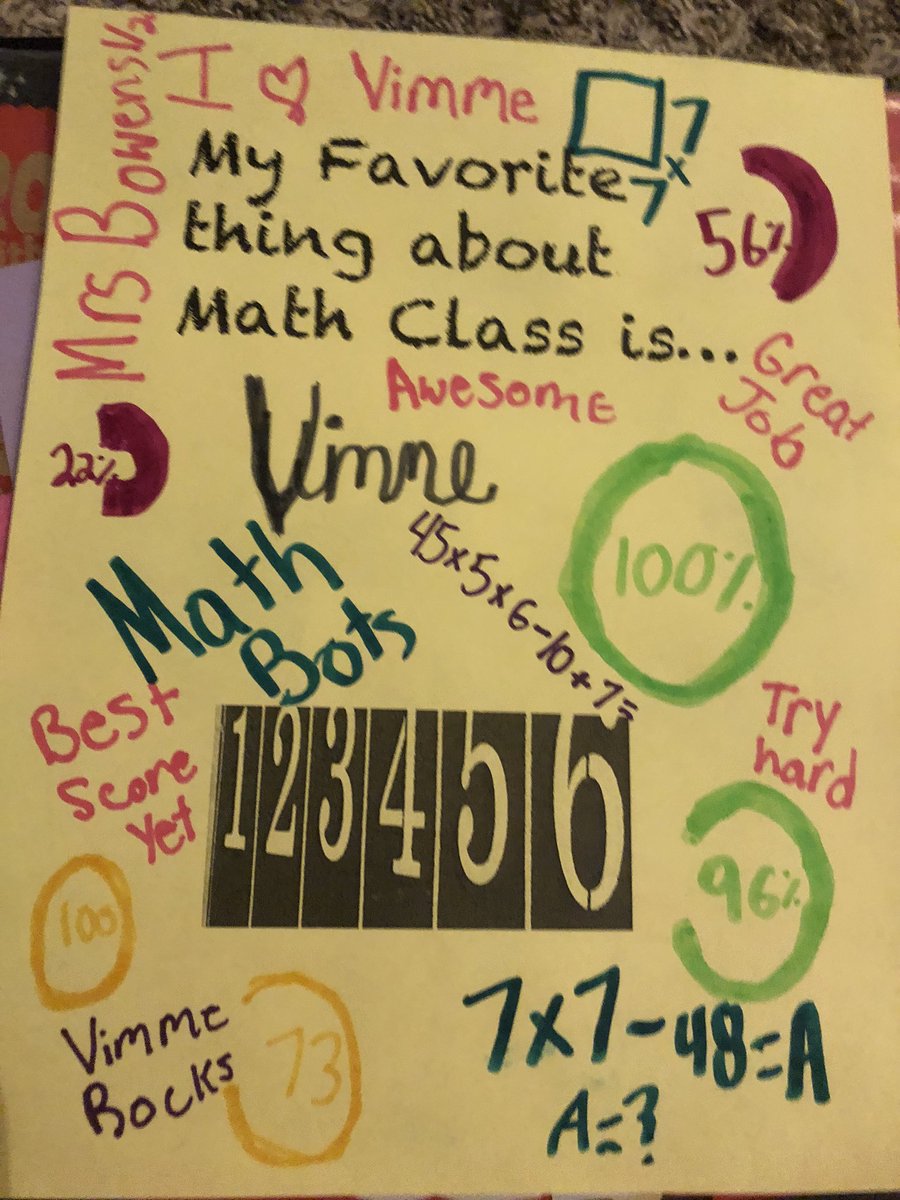 Mrs Bowens ½
I ♡ Vimme
7
x
7
My Favorite
thing about
Math Class is...
56%
Awesome
Great
Job
22%
Vimme
100%
45x5x6-10+7=
Math
Bots
Best
Score
Yet
Try
hard
1 2 3 4 5 6
96%
100
Vimme
Rocks
73
7x7-48=A
A=?